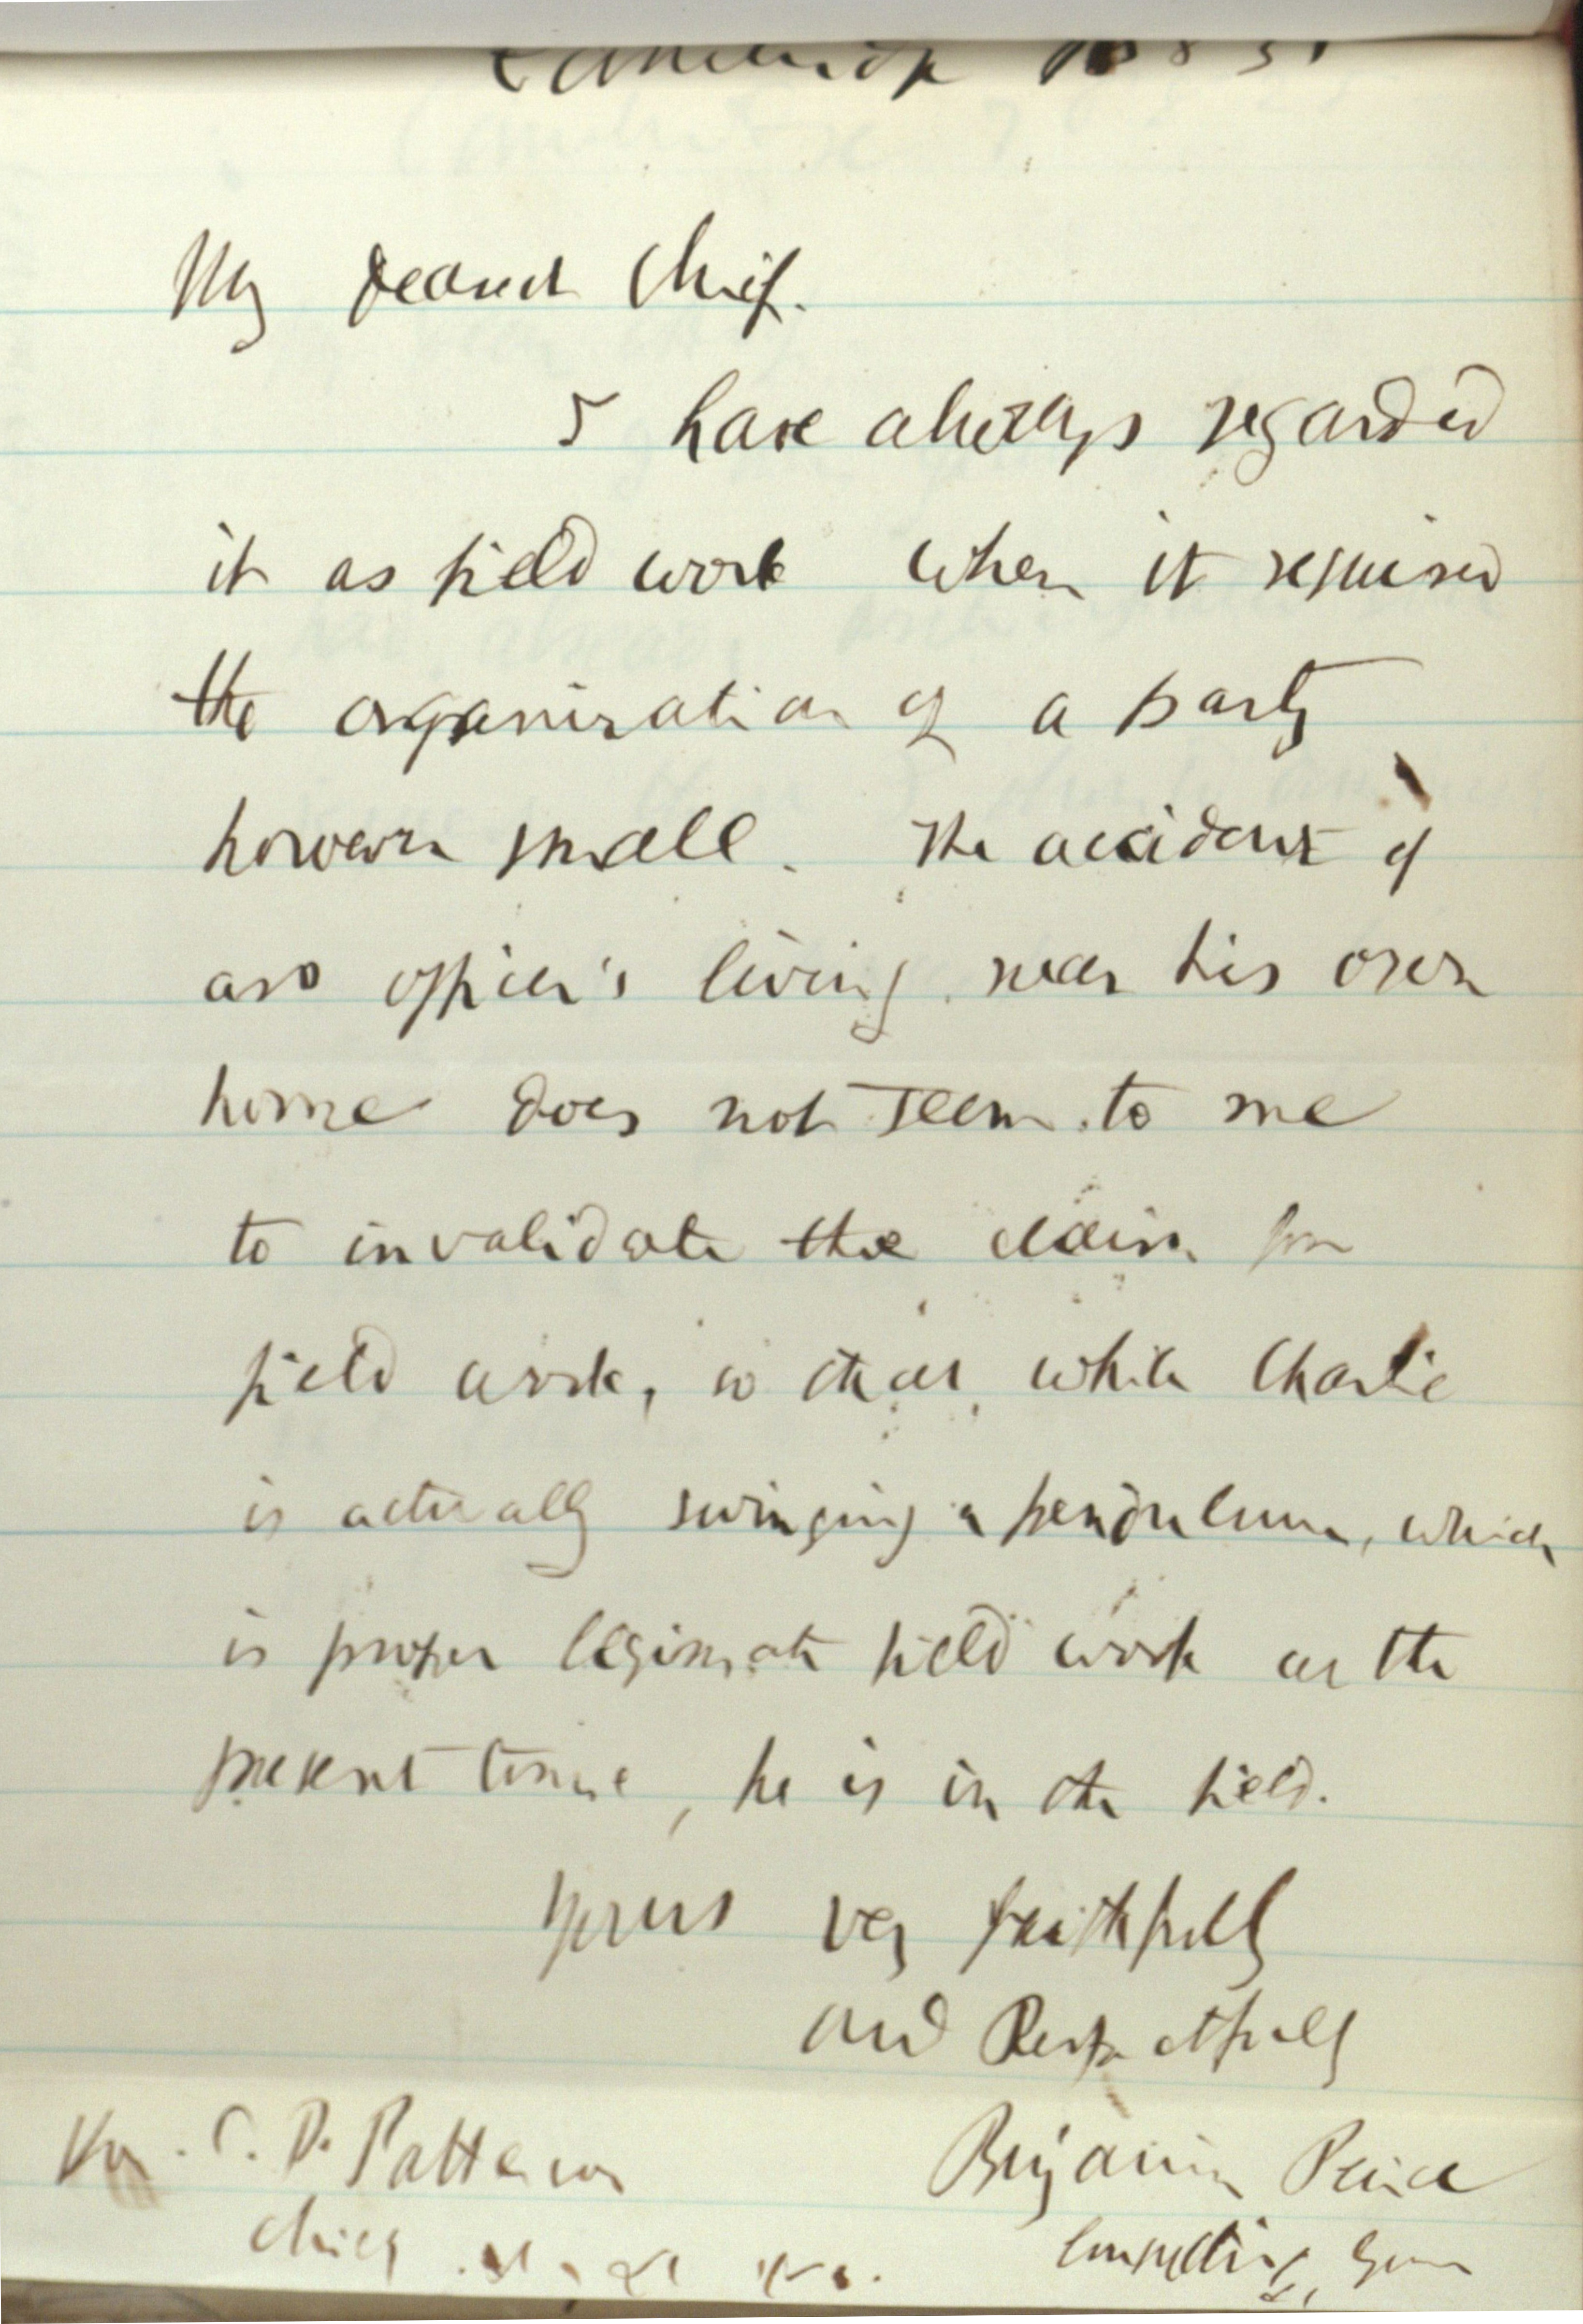 Cambridge
My dearest Chief.
I have always regarded
it as field work when it required
the organization of a party
however small. The accident of
an officer's living near his own
home does not seem to me
to invalidate the claim for
field work, so that, while Charlie
is actually swinging a pendulum, which
is proper legimate field work at the
present time, he is in the field.
Yours very faithfully
and Respectfully
C. P. Patterson Benjamin Peirce
Chief Consulting Geom